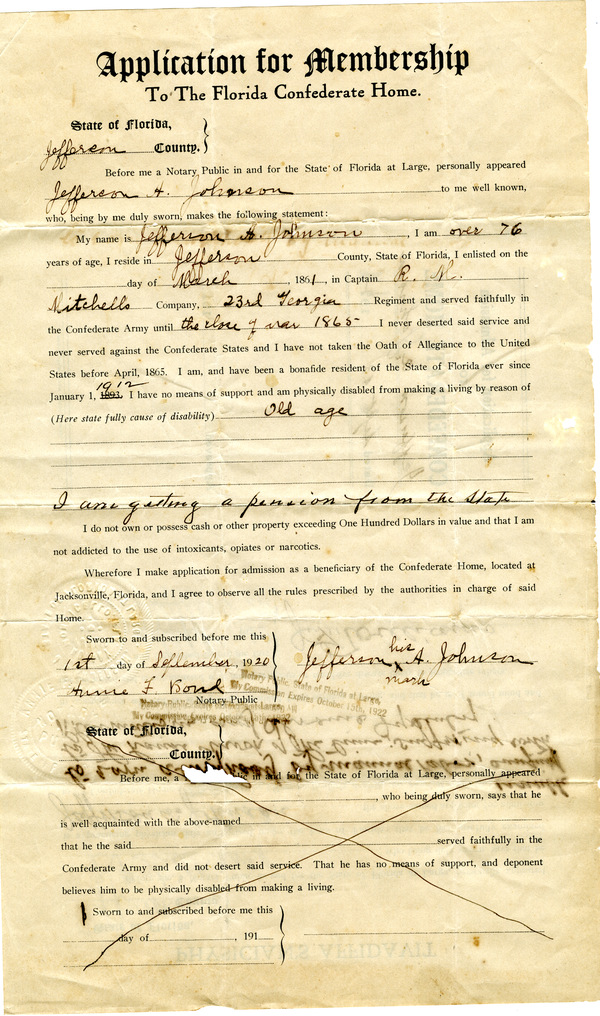 Application for Membership
To The Florida Confederate Home.
State of Florida,
Jefferson County.
Before me a Notary Public in and for the State of Florida at Large, personally appeared
Jefferson A. Johnson to me well known,
who, being by me duly sworn, makes the following statement:
My name is Jefferson A. Johnson, I am over 76
years of age, I reside in Jefferson County, State of Florida, I enlisted on the
day of March, 1861, in Captain R. M.
Mitchells Company, 23rd Georgia Regiment and served faithfully in
the Confederate Army until the close of war 1865 I never deserted said service and
never served against the Confederate States and I have not taken the Oath of Allegiance to the United
States before April, 1865. I am, and have been a bonafide resident of the State of Florida ever since
1912
January 1, 1893, I have no means of support and am physically disabled from making a living by reason of
(Here state fully cause of disability) Old age
I am getting a pension from the State
I do not own or possess cash or other property exceeding One Hundred Dollars in value and that I am
not addicted to the use of intoxicants, opiates or narcotics.
Wherefore I make application for admission as a beneficiary of the Confederate Home, located at
Jacksonville, Florida, and I agree to observe all the rules prescribed by the authorities in charge of said
Home.
Sworn to and subscribed before me this
1st day of September, 1920
Jefferson his x mark A. Johnson
Annie F. Bond
Notary Public
Notary Public, State of Florida at Large,
My Commission Expires October 15th, 1922
State of Florida,
County.
Before me, a in and for the State of Florida at Large, personally appeared
, who being duly sworn, says that he
is well acquainted with the above-named
that he the said served faithfully in the
Confederate Army and did not desert said service. That he has no means of support, and deponent
believes him to be physically disabled from making a living.
Sworn to and subscribed before me this
day of , 191
PHYSICIAN'S AFFIDAVIT